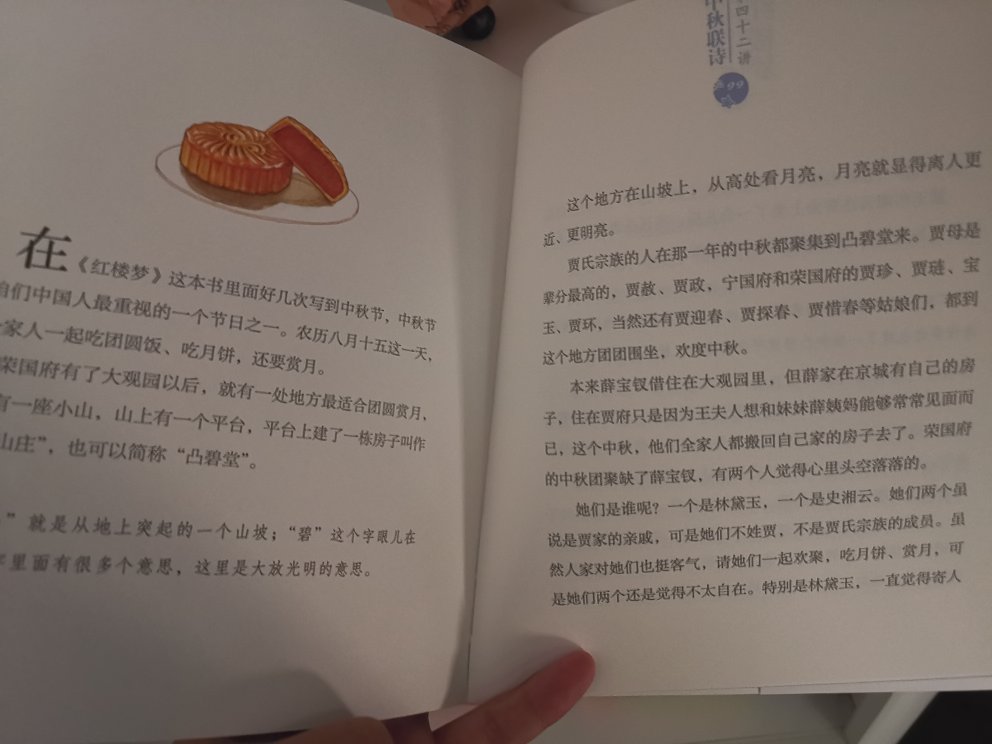 在《红楼梦》这本书里面好几次写到中秋节，中秋节
们中国人最重视的一个节日之一。农历八月十五这一天，
家人一起吃团圆饭、吃月饼，还要赏月。
荣国府有了大观园以后，就有一处地方最适合团圆赏月，
有一座小山，山上有一个平台，平台上建了一栋房子叫作
山庄”，也可以简称“凸碧堂”。
”就是从地上突起的一个山坡；“碧”这个字眼儿在
字里面有很多个意思，这里是大放光明的意思。
四十二讲
中秋联诗
99
这个地方在山坡上，从高处看月亮，月亮就显得离人更
近、更明亮。
贾氏宗族的人在那一年的中秋都聚集到凸碧堂来。贾母是
辈分最高的，贾赦、贾政，宁国府和荣国府的贾珍、贾琏、宝
玉、贾环，当然还有贾迎春、贾探春、贾惜春等姑娘们，都到
这个地方团团围坐，欢度中秋。
本来薛宝钗借住在大观园里，但薛家在京城有自己的房
子，住在贾府只是因为王夫人想和妹妹薛姨妈能够常常见面而
已，这个中秋，他们全家人都搬回自己家的房子去了。荣国府
的中秋团聚缺了薛宝钗，有两个人觉得心里头空落落的。
她们是谁呢？一个是林黛玉，一个是史湘云。她们两个虽
说是贾家的亲戚，可是她们不姓贾，不是贾氏宗族的成员。虽
然人家对她们也挺客气，请她们一起欢聚，吃月饼、赏月，可
是她们两个还是觉得不太自在。特别是林黛玉，一直觉得寄人